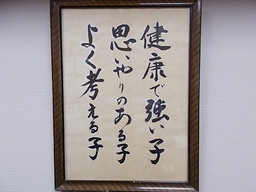 健康で強い子
思いやりのある子
よく考える子